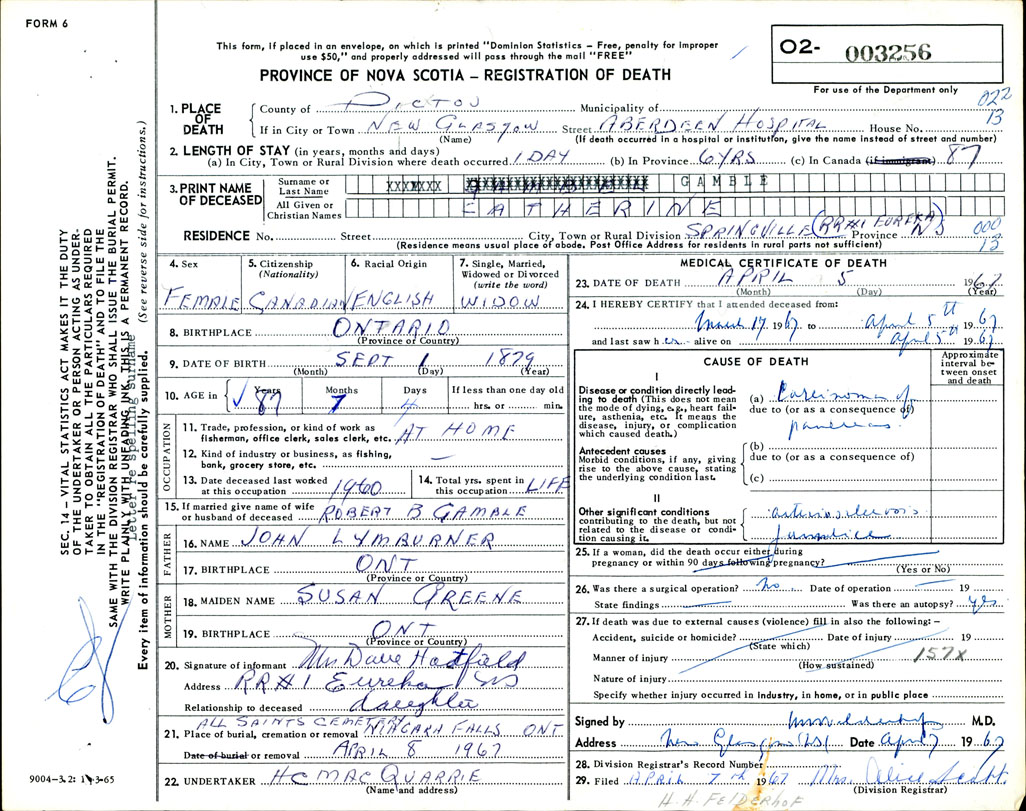 FORM 6
This form, if placed in an envelope, on which is printed "Dominion Statistics – Free, penalty for improper
use $50," and properly addressed will pass through the mail "FREE"
PROVINCE OF NOVA SCOTIA – REGISTRATION OF DEATH
O2- 003256
For use of the Department only
022
13
1. PLACE OF DEATH
County of PICTOU Municipality of
If in City or Town NEW GLASGOW Street ABERDEEN HOSPITAL House No.
(Name) (If death occurred in a hospital or institution, give the name instead of street and number)
2. LENGTH OF STAY (in years, months and days)
(a) In City, Town or Rural Division where death occurred 1 DAY (b) In Province 6 YRS (c) In Canada (if immigrant) 87
3. PRINT NAME OF DECEASED
Surname or Last Name GAMBLE
All Given or Christian Names CATHERINE
RESIDENCE No. Street City, Town or Rural Division SPRINGVILLE (RR#1 EUREKA) Province NS
(Residence means usual place of abode. Post Office Address for residents in rural parts not sufficient)
000
13
4. Sex FEMALE
5. Citizenship (Nationality) CANADIAN
6. Racial Origin ENGLISH
7. Single, Married, Widowed or Divorced (write the word) WIDOW
8. BIRTHPLACE ONTARIO
(Province or Country)
9. DATE OF BIRTH SEPT 1 1879
(Month) (Day) (Year)
10. AGE in Years 87 Months 7 Days 4 If less than one day old
hrs. or min.
OCCUPATION
11. Trade, profession, or kind of work as
fisherman, office clerk, sales clerk, etc. AT HOME
12. Kind of industry or business, as fishing,
bank, grocery store, etc. —
13. Date deceased last worked
at this occupation 1960
14. Total yrs. spent in
this occupation LIFE
15. If married give name of wife
or husband of deceased ROBERT B GAMBLE
FATHER
16. NAME JOHN LYMBURNER
17. BIRTHPLACE ONT
(Province or Country)
MOTHER
18. MAIDEN NAME SUSAN GREENE
19. BIRTHPLACE ONT
(Province or Country)
20. Signature of informant Mrs Dave Hatfield
Address RR#1 Eureka NS
Relationship to deceased daughter
ALL SAINTS CEMETERY
21. Place of burial, cremation or removal NIAGARA FALLS ONT
Date of burial or removal APRIL 8 1967
22. UNDERTAKER HC MAC QUARRIE
(Name and address)
MEDICAL CERTIFICATE OF DEATH
23. DATE OF DEATH APRIL 5 1967
(Month) (Day) (Year)
24. I HEREBY CERTIFY that I attended deceased from:
March 17 1967 to April 5th 1967
and last saw her alive on April 5th 1967
CAUSE OF DEATH
Approximate interval between onset and death
I
Disease or condition directly leading to death (This does not mean the mode of dying, e.g., heart failure, asthenia, etc. It means the disease, injury, or complication which caused death.)
(a) Carcinoma of
due to (or as a consequence of)
pancreas
Antecedent causes
Morbid conditions, if any, giving rise to the above cause, stating the underlying condition last.
(b)
due to (or as a consequence of)
(c)
II
Other significant conditions
contributing to the death, but not related to the disease or condition causing it.
Jaundice
25. If a woman, did the death occur either during
pregnancy or within 90 days following pregnancy?
(Yes or No)
26. Was there a surgical operation? No Date of operation — 19
State findings — Was there an autopsy? yes
27. If death was due to external causes (violence) fill in also the following: –
Accident, suicide or homicide? Date of injury 19
(State which)
Manner of injury 157X
(How sustained)
Nature of injury
Specify whether injury occurred in Industry, in home, or in public place
Signed by M.D.
Address New Glasgow NS Date April 7 1967
28. Division Registrar's Record Number
29. Filed APRIL 7th 1967 Mrs. Alice Scott
(Division Registrar)
H. H. FELDERHOF
SEC. 14 – VITAL STATISTICS ACT MAKES IT THE DUTY
OF THE UNDERTAKER OR PERSON ACTING AS UNDER-
TAKER TO OBTAIN ALL THE PARTICULARS REQUIRED
IN THE "REGISTRATION OF DEATH" AND TO FILE THE
SAME WITH THE DIVISION REGISTRAR WHO SHALL ISSUE THE BURIAL PERMIT.
WRITE PLAINLY WITH UNFADING INK. THIS IS A PERMANENT RECORD.
Letter re spelling surname
Every item of information should be carefully supplied. (See reverse side for instructions.)